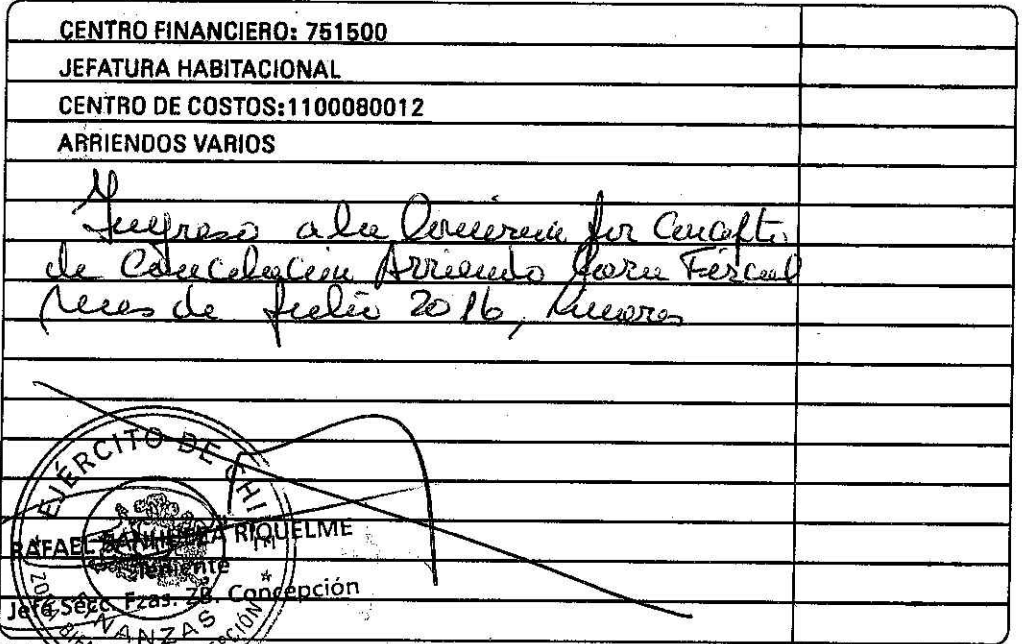 CENTRO FINANCIERO: 751500
JEFATURA HABITACIONAL
CENTRO DE COSTOS:1100080012
ARRIENDOS VARIOS
Ingreso a la por Concepto
de Cancelación Arriendo Casa Fiscal
mes de Julio 2016, Linares
EJÉRCITO DE CHILE
RAFAEL SANHUEZA RIQUELME
Teniente
Jefe Secc. Fzas. ZB. Concepción
FINANZAS